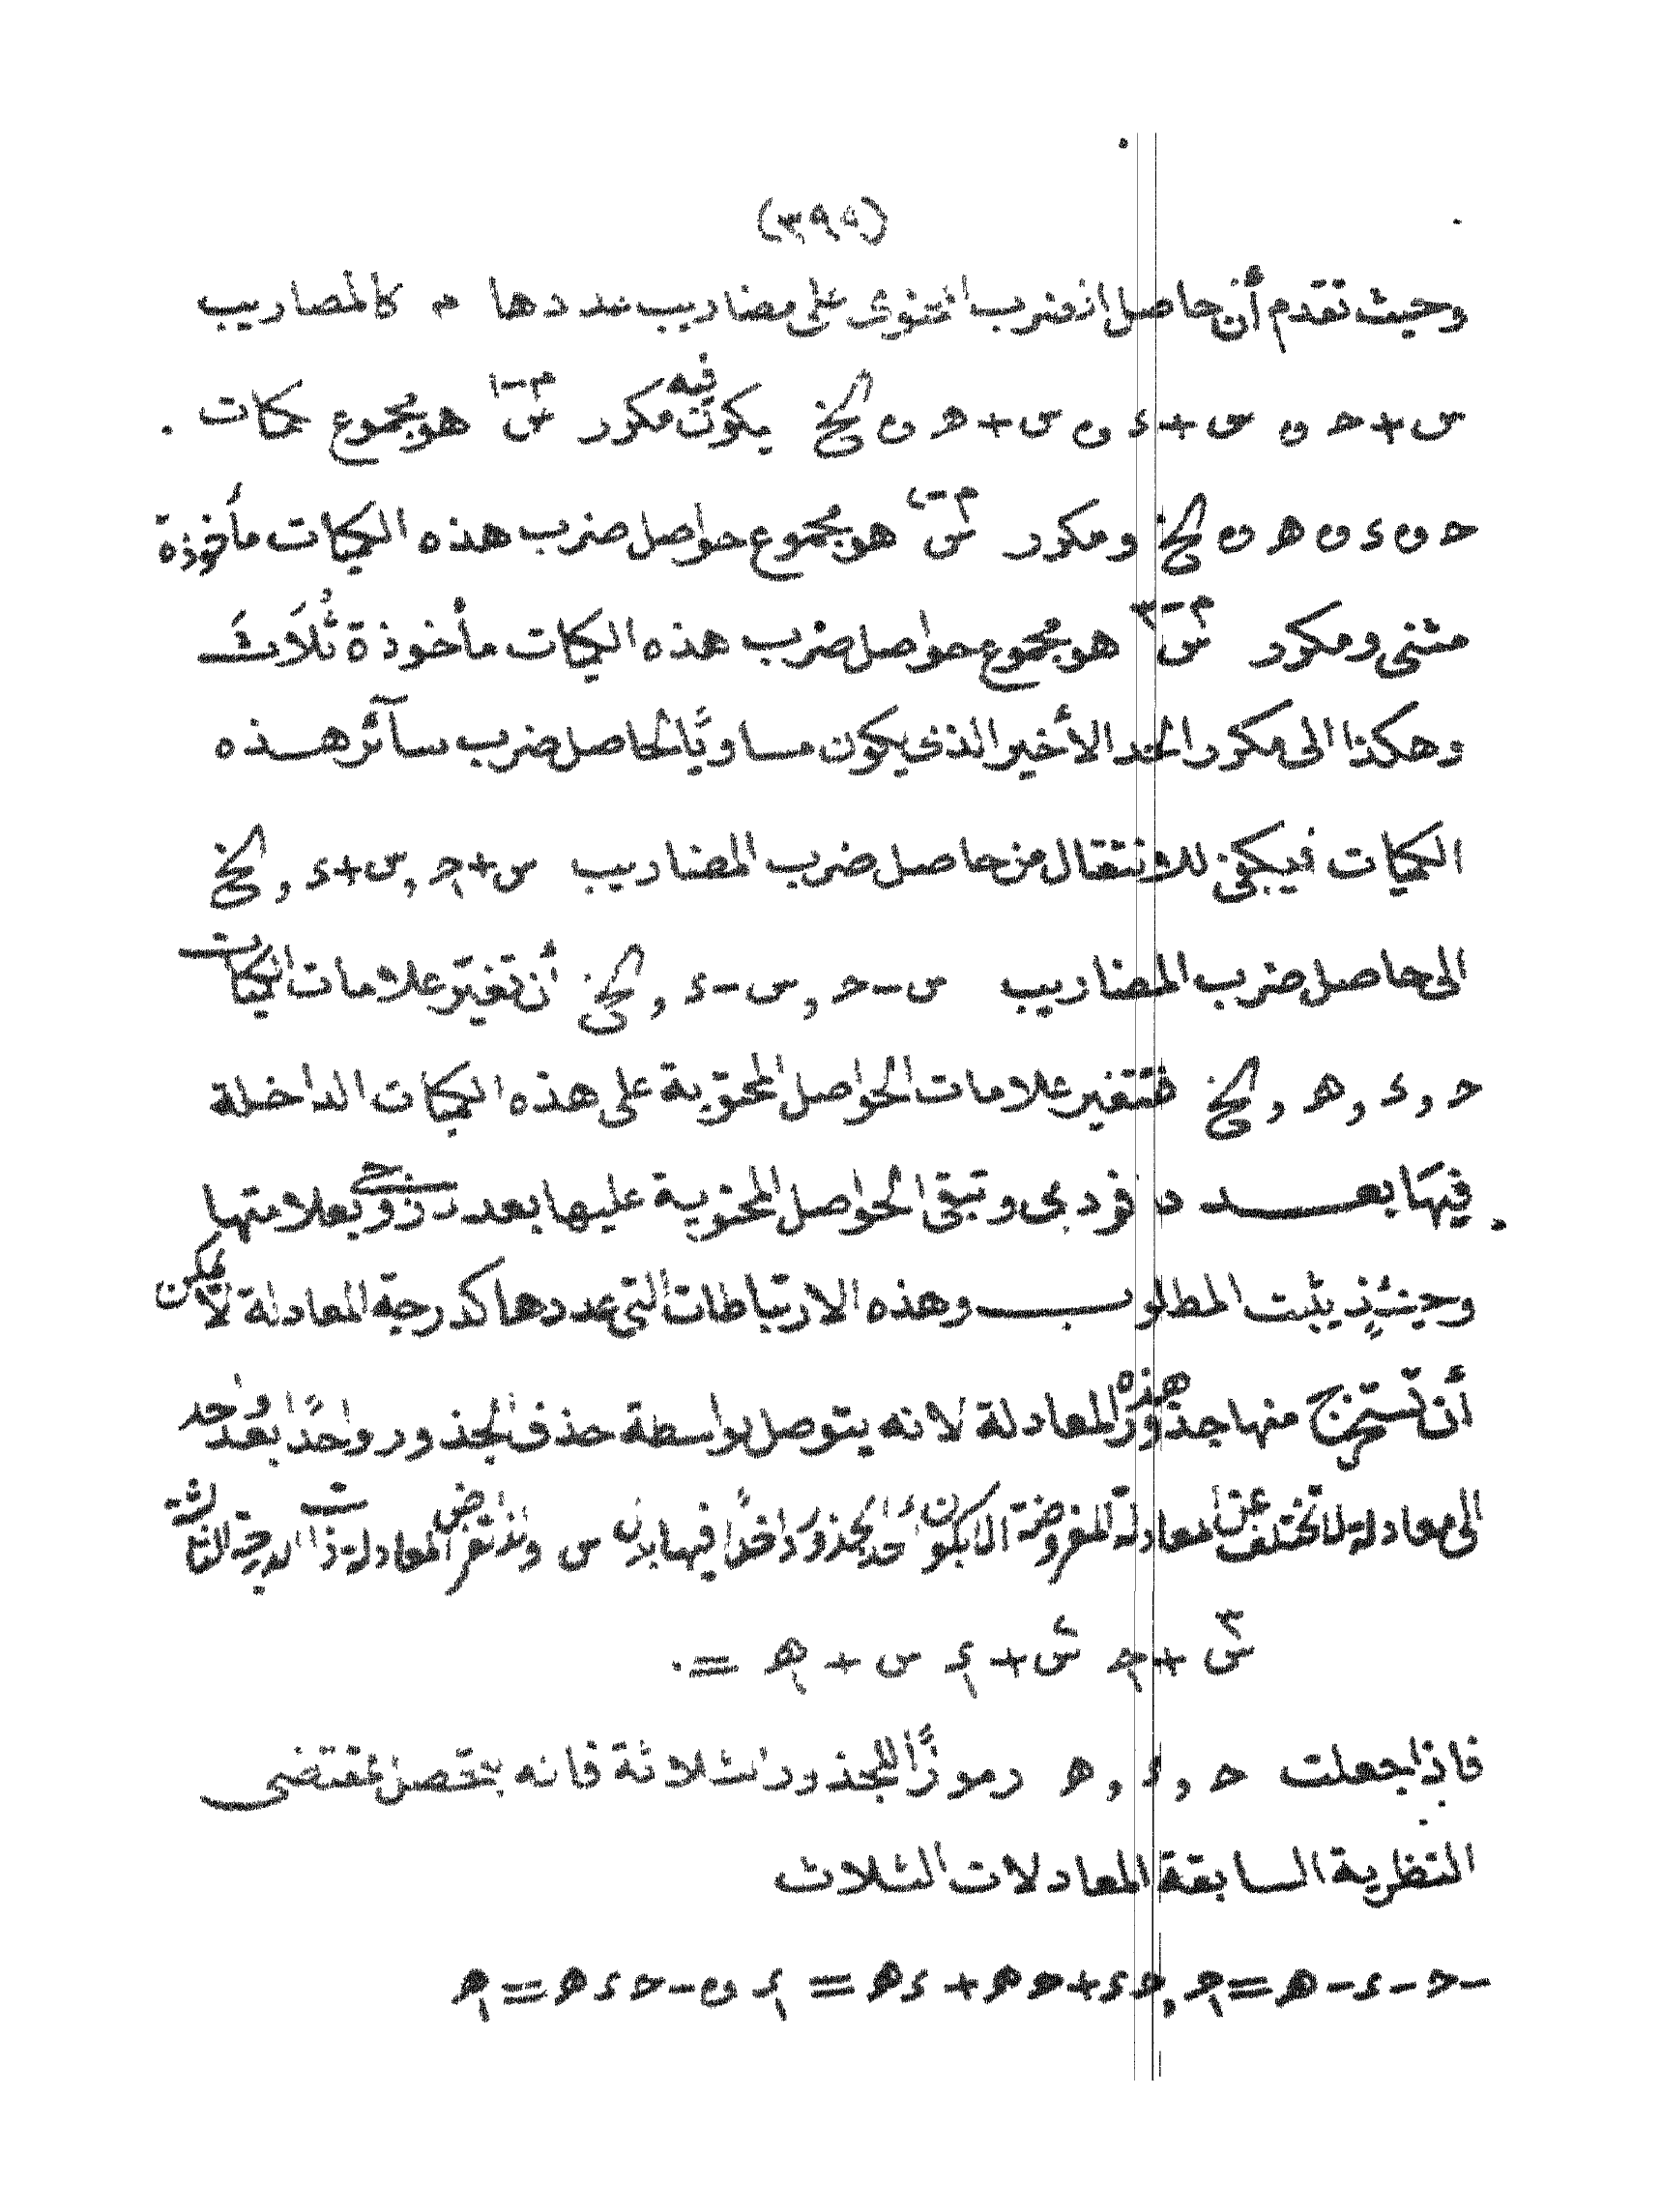 (٣٩٥)
وحيث تقدم أن حاصل الضرب المحتوى على مضاريب عددها م كالمضاريب
س+حـ ن س+ء ن س+هـ ن الخ يكون فيه مكرر س^م-١ هو مجموع كميات
حـ ن ء ن هـ ن الخ ومكرر س^م-٢ هو مجموع حواصل ضرب هذه الكميات مأخوذة
مثنى ومكرر س^م-٣ هو مجموع حواصل ضرب هذه الكميات مأخوذة ثُلاَثَ
وهكذا الى مكرر الحد الأخير الذى يكون مساويًا لحاصل ضرب سآئر هذه
الكميات فيكفى للانتقال من حاصل ضرب المضاريب س+حـ , س+ء , الخ
الى حاصل ضرب المضاريب س-حـ , س-ء , الخ أن تغير علامات الكميات
حـ , ء , هـ , الخ فتتغير علامات الحواصل المحتوية على هذه الكميات الداخلة
فيها بعدد فردى وتبقى الحواصل المحتوية عليها بعدد زوجى بعلامتها
وحينئذٍ يثبت المطلوب وهذه الارتباطات التى عددها كدرجة المعادلة لا يمكن
أن تستخرج منها جذور هذه المعادلة لانه يتوصل بواسطة حذف الجذور واحدًا بعد واحد
الى معادلة لا تختلف عن المعادلة المفروضة الا بكون أحد الجذور داخلًا فيها بدل س ولنفرض المعادلة ذات الدرجة الثالثة
س^٣ + حـ١ س^٢ + ء١ س + هـ١ = ٠
فاذا جعلت حـ , ء , هـ رموزًا للجذور الثلاثة فانه يتحصل بمقتضى
النظرية السابقة المعادلات الثلاث
-حـ-ء-هـ=حـ١ , حـء+حـهـ+ءهـ=ء١ ن -حـءهـ=هـ١